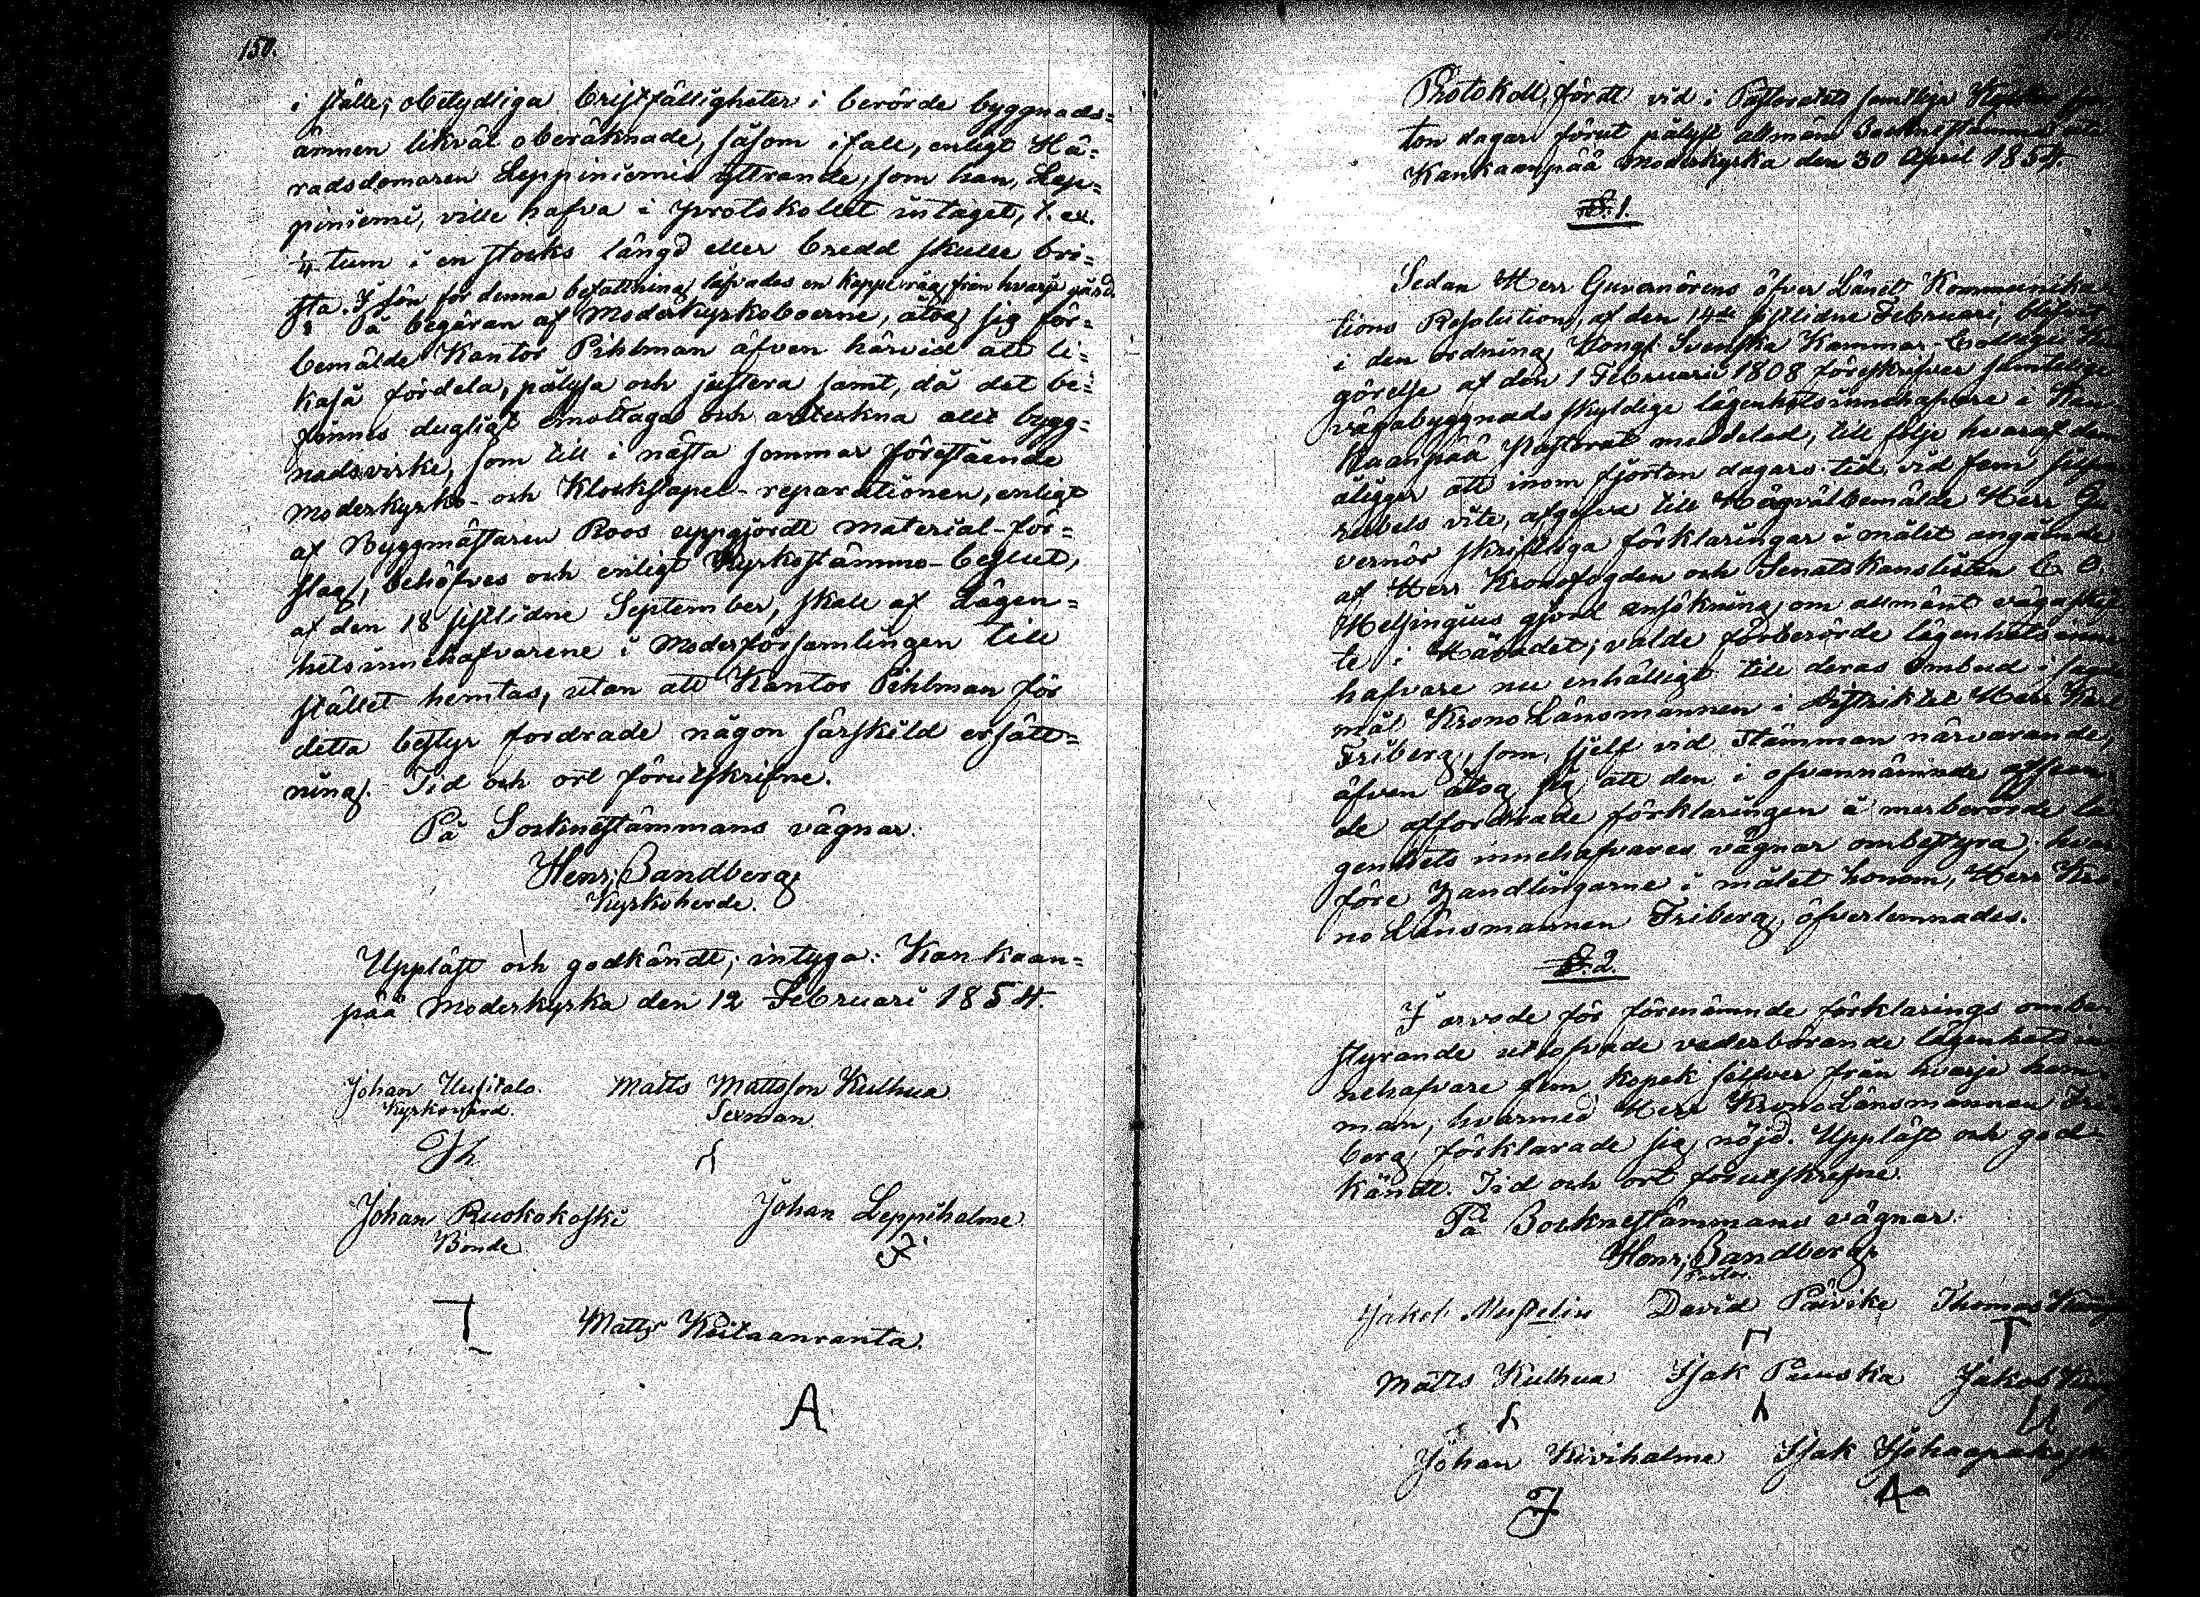 150.
i ställe; obetydliga bristfälligheter i berörde byggnads=
ämnen likväl oberäknade, såsom ifall, enligt Hä=
radsdomaren Leppiniemis yttrande, som han, Lep=
piniemi, ville hafva i protokollet intaget, t. ex.
1/4 tum i en stocks längd eller bredd skulle bri=
sta. I lön för denna befattning lofvades en kappe råg från hvarje gård.
På begäran af Moderkyrkoboerne, åtog sig för=
bemälde Kantor Pihlman äfven härvid att li=
kaså fördela, pålysa och justera samt, då det be=
finnes dugligt emottaga och anteckna allt bygg=
nadsvirke, som till i nästa sommar förestående
Moderkyrko- och Klockstapel-reparationen, enligt
af Byggmästaren Roos uppgjordt material-för=
slag, behöfves och enligt Kyrkostämmo-beslut,
af den 18 sistlidne September, skall af Lägen=
hetsinnehafvarene i Moderförsamlingen till
stället hemtas, utan att Kantor Pihlman för
detta bestyr fordrade någon särskild ersätt=
ning. Tid och ort förutskrifne.
På Socknestämmans vägnar:
Henr. Sandberg
Kyrkoherde.
Uppläst och godkändt, intyga: Kankaan=
pää Moderkyrka den 12 Februari 1854.
Johan Uusitalo Matts Mattsson Kulhua
Kyrkovärd. Sexman
Johan Ruokokoski Johan Leppihalme
Bonde
Matts Keitaanranta.
A
Protokoll, fördt vid i Pastoratets samtlige
ton dagar förut pålyst allmän Socknestämma uti
Kankaanpää Moderkyrka den 30 April 1854.
§. 1.
Sedan Herr Guvernörens öfver Länet Kommunika
tions Resolution, af den 14de sistlidne Februari, blifvit
i den ordning Kongl. Svenska Kammar-Collegii
görelse af den 1 Februarii 1808 föreskrifver samtelige
vägabyggnads skyldige lägenhetsinnehafvare i Kan
kaanpää Pastorat meddelad, till följe hvaraf dem
åligger att inom fjorton dagars tid, vid fem silfver
rubels vite, afgifva till Högvälbemälde Herr Gu
vernör skriftliga förklaringar i målet angående
af Herr Kronofogden och Senats Kanslisten C. O.
Helsingius gjord ansökning om allmänt vägaskif
te i Häradet; valde förberörde lägenhetsinne
hafvare nu enhälligt till deras ombud i sagde
mål Kronolänsmannen i Distriktet Herr Karl
Friberg, som, sjelf vid Stämman närvarande,
äfven åtog sig att den i ofvannämnde afseen
de affordrade förklaringen å merberörde lä
genhets innehafvares vägnar ombestyra; hvar
före handlingarne i målet honom, Herr Kro
no Länsmannen Friberg, öfverlemnades.
§. 2.
I arvode för förenämnde förklarings ombe
styrande utlofvade vederbörande lägenhetsin
nehafvare fem kopek silfver från hvarje hem
man, hvarmed Herr KronoLänsmannen Fri
berg förklarade sig nöjd. Uppläst och god
kändt. Tid och ort förutskrifne.
På Socknestämmans vägnar:
Henr. Sandberg
Pastor.
Jakob Mustelin David Päivike Thomas
Matts Kulhua Isak Puuska Jakob
Johan Kivihalme Isak